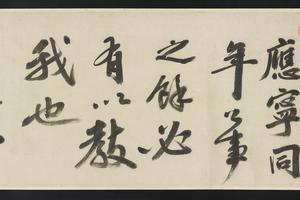 應寧同
年公事
之餘必
有以教
我也